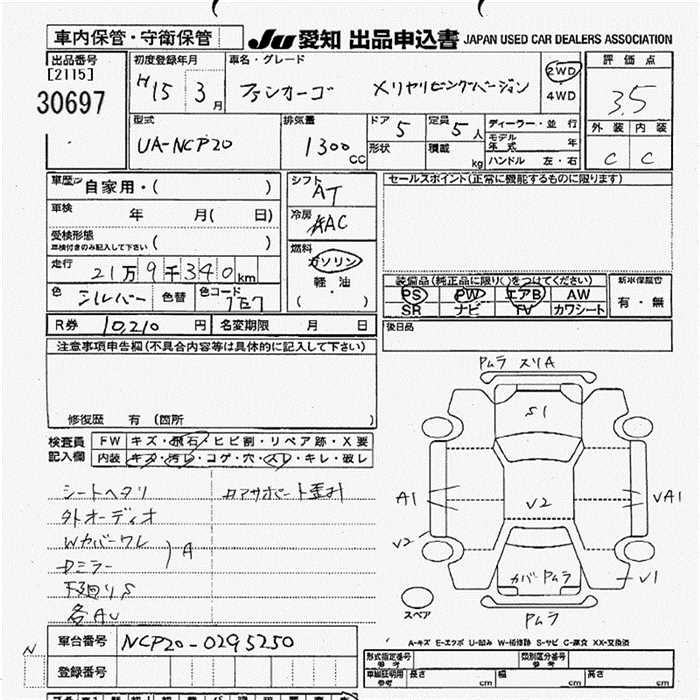 車内保管・守衛保管
JU 愛知 出品申込書 JAPAN USED CAR DEALERS ASSOCIATION
出品番号
[2115]
30697
初度登録年月
H15 3月
車名・グレード
ファンカーゴ
2WD
4WD
評価点
3.5
外装 内装
C C
型式
UA-NCP20
排気量
1300 CC
ドア 5
形状
定員 5人
積載 kg
ディーラー・並行
モデル年式 年
ハンドル 左・右
車歴 自家用・( )
車検 年 月( 日)
受検形態
車検付きのみ記入して下さい ( )
走行 21万9千340km
色 シルバー 色替 色コード 1E7
R券 10,210 円 名変期限 月 日
シフト AT
冷房 AAC
燃料
ガソリン
軽・油
( )
セールスポイント(正常に機能するものに限ります)
装備品(純正品に限り○をつけてください)
PS PW エアB AW
SR ナビ TV カワシート
新車保証書
有・無
後日品
注意事項申告欄(不具合内容等は具体的に記入して下さい)
修復歴 有 (箇所 )
検査員記入欄
FW キズ・飛石・ヒビ割・リペア跡・X要
内装 キズ・汚レ・コゲ・穴・スレ・キレ・破レ
シートヘタリ
外オーディオ
Wカバーワレ
Dミラー
A
下廻りS
各AU
Pムラ スリA
S1
A1
V2
VA1
V2
カバPムラ
V1
Pムラ
スペア
A-キズ E-エクボ U-凹み W-補修跡 S-サビ C-腐食 XX-交換済
車台番号 NCP20-0295250
登録番号
N
形式指定番号
参考
類別区分番号
参考
車両証明用
参考
長さ cm 幅 cm 高さ cm